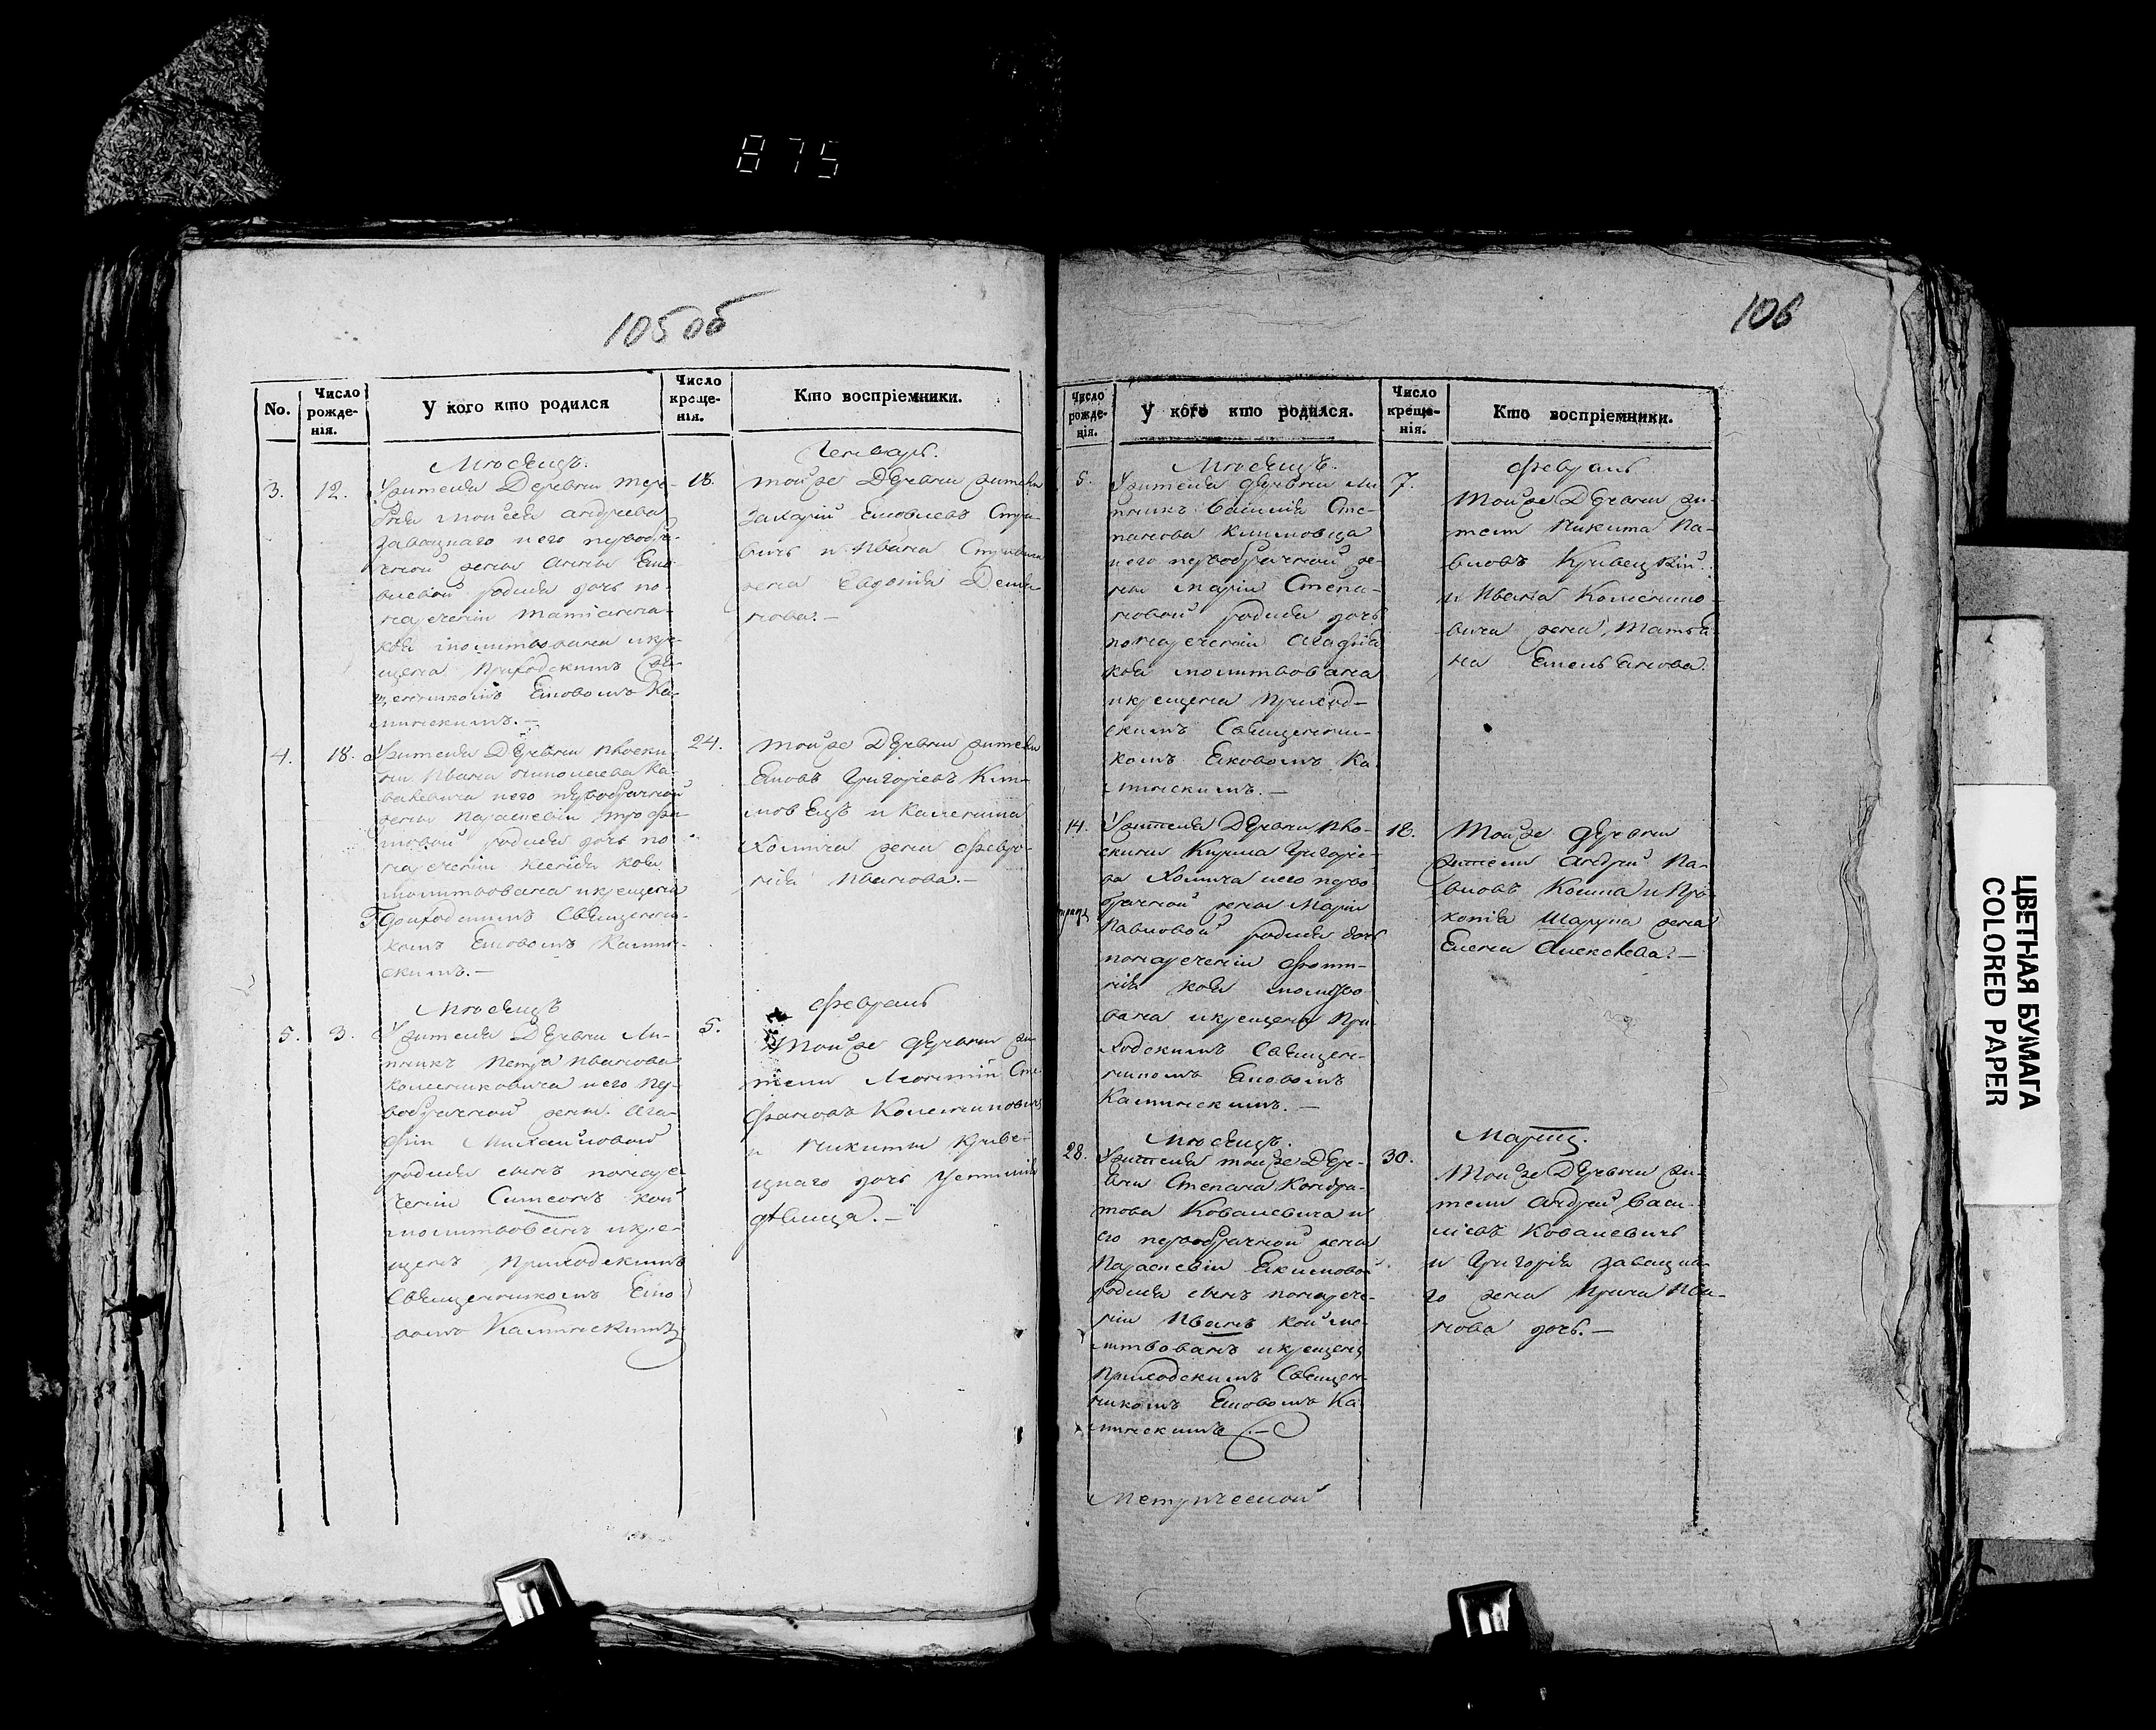 875
105об
106
No. Число рожденія. У кого кто родился Число крещенія. Кто воспріемники.
Мѣсяцъ. Генварь.
3. 12. 18.
Жителя Деревни Тере-
Моисея Андреева
Завацкаго и его первобра-
чной жены Анны Еко-
влевой родися дочь по
наречении Татіанна
коя молитвована и кре-
щена Приходскимъ Свя-
щенникомъ Ековомъ Ка-
минскимъ.—
Той же Деревни жители
Захарій Ековлевъ
и Ивана
жена Евдокія Деми-
нова.—
4. 18. 24.
Жителя Деревни
Ивана Николаева Ко-
валевича и его первобрачной
жены Параскевіи Трофи-
мовой родися дочь по
наречении Ксенія коя
молитвована и крещена
Приходскимъ Священни-
комъ Ековомъ Камин-
скимъ.—
Той же Деревни жители
Ековъ Григорієвъ Кли-
мовецъ и
Хомича жена Февро-
нія Иванова.—
Мѣсяцъ Февраль
5. 3. 5.
Жителя Деревни Ли-
пникъ Петра Иванова
Колесниковича и его пер-
вобрачной жены Ага-
фіи Михайловой
родися сынъ по наре-
ченіи Симеонъ кой
молитвованъ и кре-
щенъ Приходскимъ
Священникомъ Еко-
вомъ Каминскимъ
Той же деревни жи-
тели Леонтій Сте-
фановъ Колесниковичъ
и Никиты Криве-
цкаго дочь Устинія
дѣвица.—
Число рожденія. У кого кто родился. Число крещенія. Кто воспріемники.
Мѣсяцъ. Февраль
5. 7.
Жителя деревни Ли-
пникъ Василія Сте-
панова Климовца
и его первобрачной же-
ны Маріи Степа-
новой родися дочь
по нареченіи Агафія
коя молитвована
и крещена Приход-
скимъ Священни-
комъ Ековомъ Ка-
минскимъ.—
Той же Деревни жи-
тели Никита Па-
вловъ Кривецкій
и Ивана Колеснико-
вича жена Татія-
на Емельянова.
14. 18.
Жителя Деревни
Кирила Григорие-
ва Хомича и его перво-
брачной жены Маріи
Павловой родися дочь
по нареченіи Фоти-
нія коя молитво-
вана и крещена При-
ходскимъ Священ-
никомъ Ековомъ
Каминскимъ.—
Той же деревни
жители Андрей Па-
вловъ Кошка и Про-
копія Шаруна жена
Елена Алексѣева.—
Мѣсяцъ. Мартъ.
28. 30.
Жителя той же Дере-
вни Степана Кондра-
това Ковалевича и
его первобрачной жены
Параскевіи Екимовой
родися сынъ по нарече-
ніи Иванъ кой мо-
литвованъ и крещенъ
Приходскимъ Священ-
никомъ Ековомъ Ка-
минскимъ.—
Той же Деревни жи-
тели Андрей Васи-
лієвъ Ковалевичъ
и Григорія Завацка-
го жена Ирина Ива-
нова дочь.—
Метрической
ЦВЕТНАЯ БУМАГА
COLORED PAPER